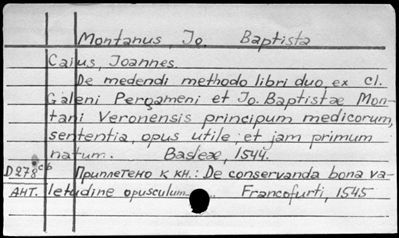 Montanus, Jo. Baptista
Caius, Joannes.
De medendi methodo libri duo, ex Cl.
Galeni Pergameni et Jo. Baptistæ Mon-
tani Veronensis principum medicorum,
sententia, opus utile, et jam primum
natum. Basleæ, 1544.
D278сб Приплетено к кн.: De conservanda bona va-
АНТ. letudine opusculum... Francofurti, 1545